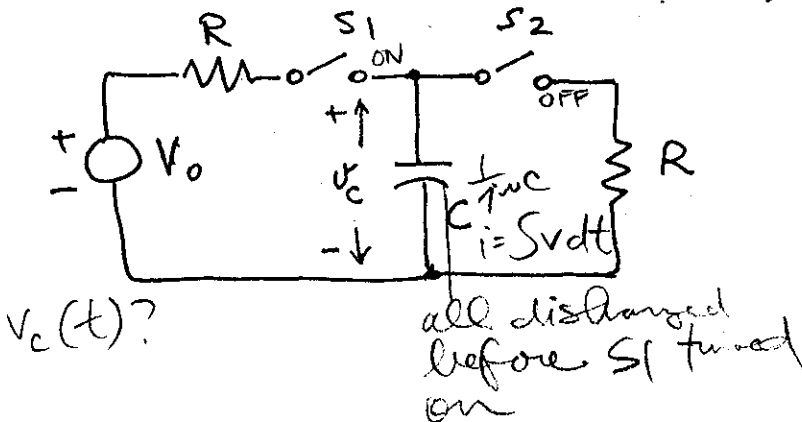 R S1 S2
ON
OFF
+
-
V₀
+
v_c
-
1/jωC
C
i=∫vdt
R
v_c(t)?
all discharged
before S1 turned
on